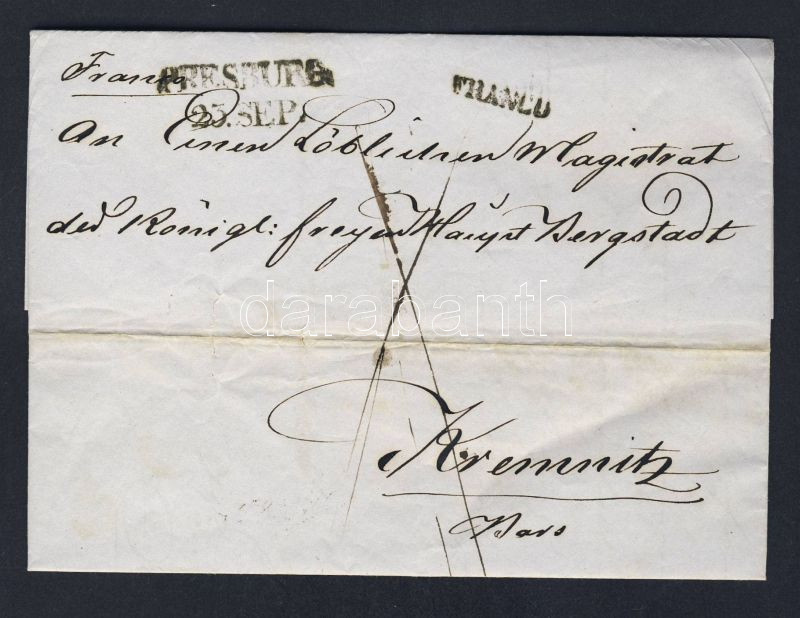 Franco
PRESBURG
23. SEP.
FRANCO
An Einen Löblichen Magistrat
der Königl: freyen Haupt Bergstadt
darabanth
Kremnitz
Bars